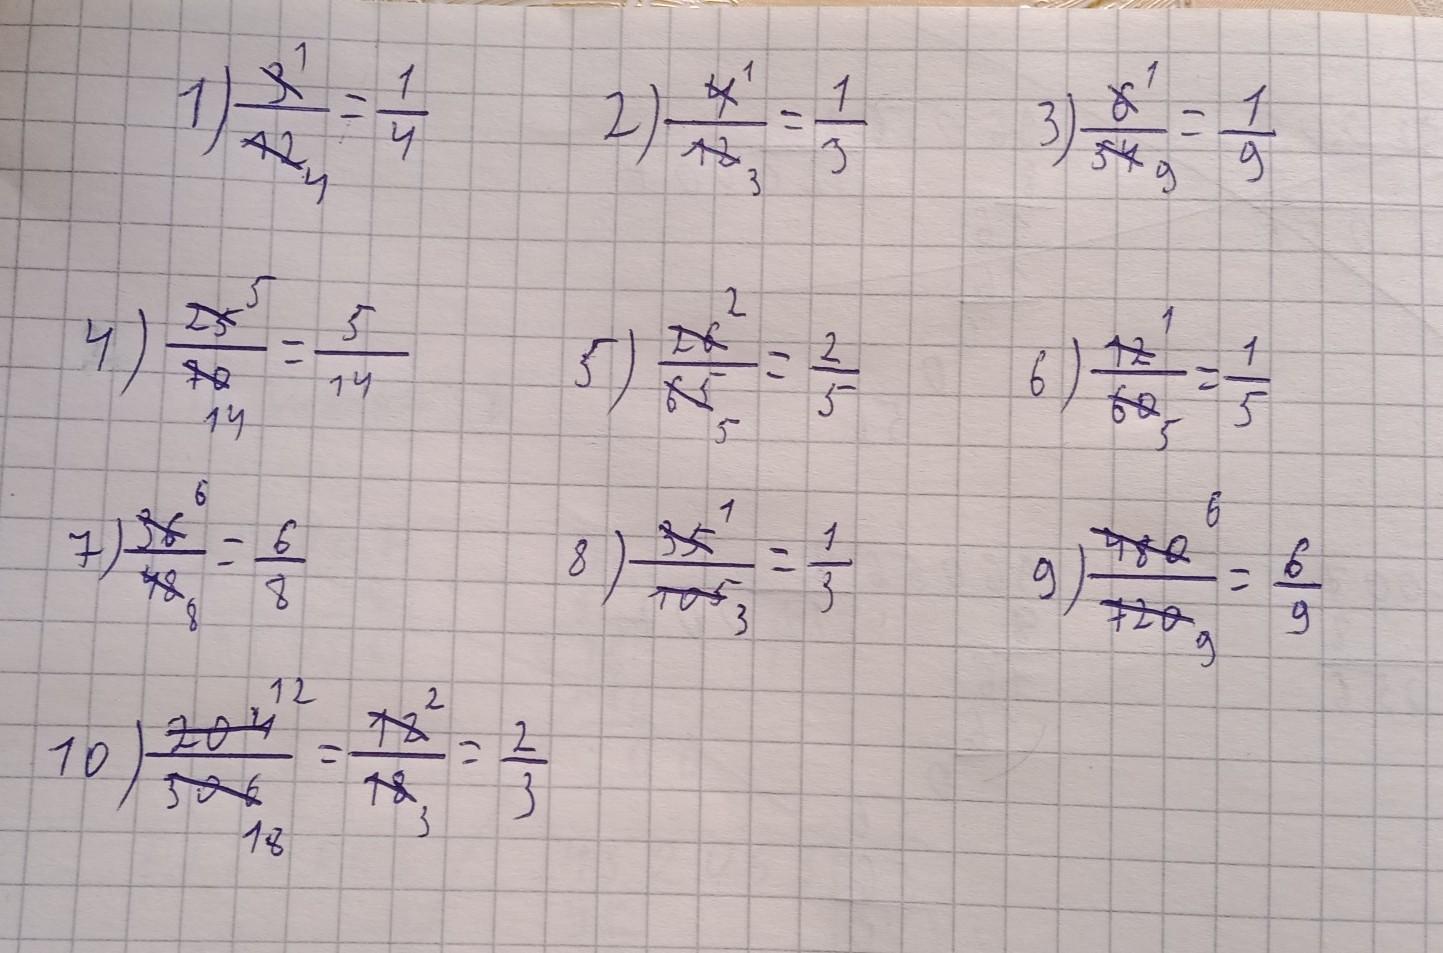 1) 3¹/12₄ = 1/4 2) 4¹/12₃ = 1/3 3) 6¹/54₉ = 1/9
4) 25⁵/70₁₄ = 5/14 5) 26²/65₅ = 2/5 6) 12¹/60₅ = 1/5
7) 36⁶/48₈ = 6/8 8) 35¹/105₃ = 1/3 9) 480⁶/720₉ = 6/9
10) 204¹²/306₁₈ = 12²/18₃ = 2/3